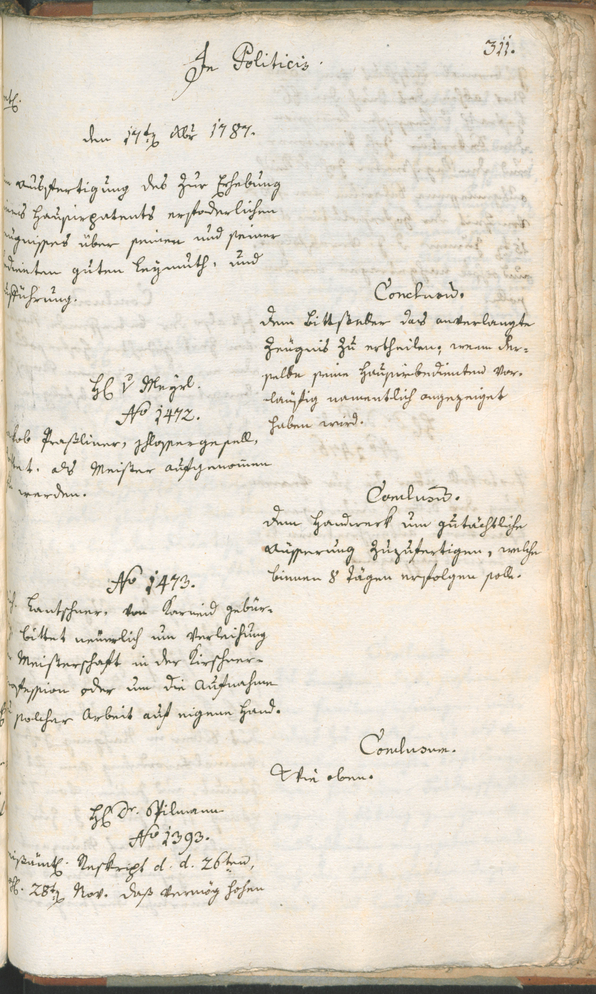 In Politicis.
311.
den 17ten Xbr 1787.
Ausfertigung des zur Erhebung
eines Hausirpatents erforderlichen
Zeugnisses über seinen und seiner
guten Leymuth, und
Aufführung.
Conclusum.
Dem Bittsteller das anverlangte
Zeugnis zu ertheilen, wenn der-
selbe seine Hausirbedienten vor-
läufig namentlich angezeiget
haben wird.
H. v Meyrl.
No 1472.
Jakob Praßliner, Schlossergesell,
bittet, als Meister aufgenommen
zu werden.
Conclusum.
Dem Handwerk um gutächtliche
Äusserung zuzufertigen, welche
binnen 8 Tägen erfolgen soll.
No 1473.
Lantschner, von Karneid gebür-
bittet neuerlich um Verleihung
Meisterschaft in der Kirschner-
profession oder um die Aufnahme
solcher Arbeit auf eigene Hand.
Conclusum.
Wie oben.
H. Dr. Spilmann
No 1393.
Kreisämtl. Reskript d. d. 26ten,
28ten Nov. daß vermög hohen